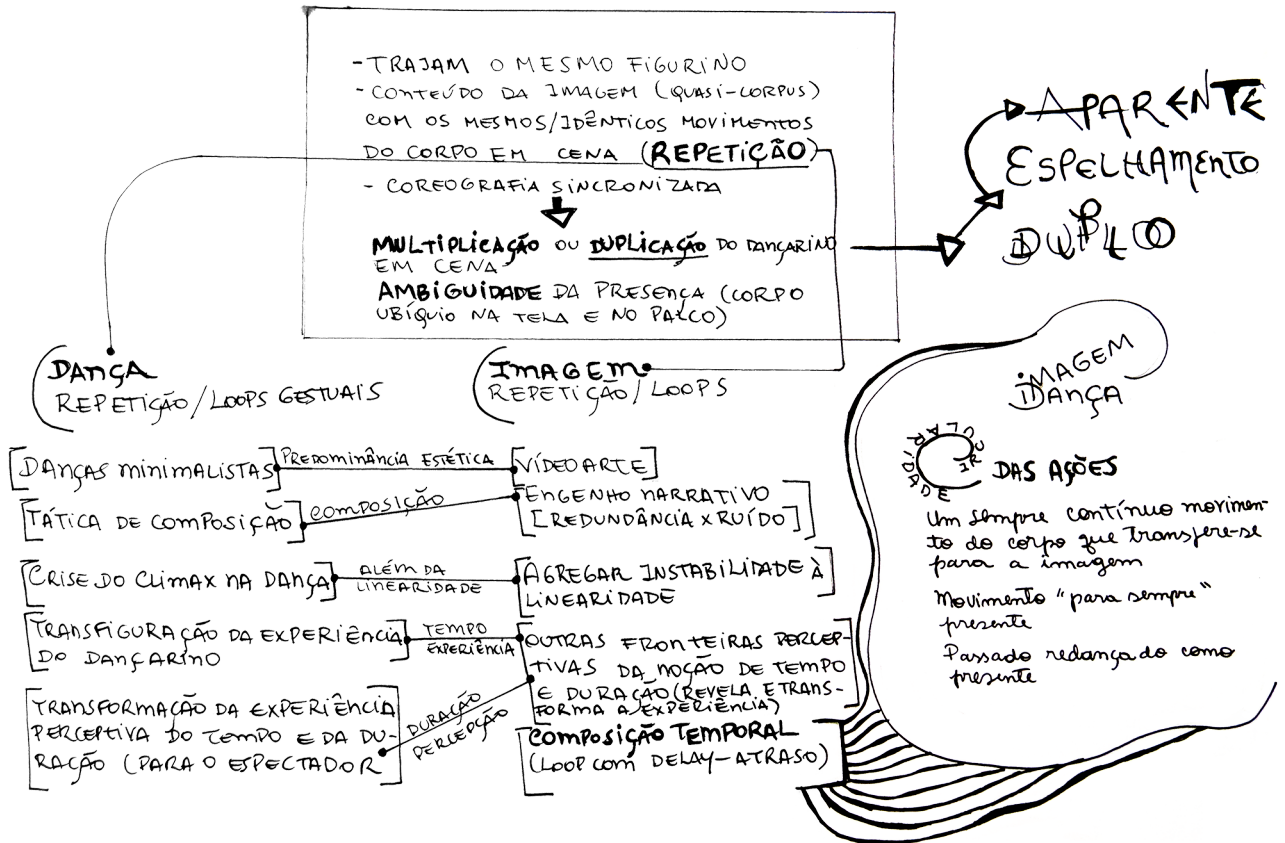 - TRAJAM O MESMO FIGURINO
- CONTEÚDO DA IMAGEM (QUASI-CORPUS)
COM OS MESMOS/IDÊNTICOS MOVIMENTOS
DO CORPO EM CENA (REPETIÇÃO)
- COREOGRAFIA SINCRONIZADA
MULTIPLICAÇÃO OU DUPLICAÇÃO DO DANÇARINO
EM CENA
AMBIGUIDADE DA PRESENÇA (CORPO
UBÍQUIO NA TELA E NO PALCO)
APARENTE
ESPELHAMENTO
DUPLO
DANÇA
REPETIÇÃO/LOOPS GESTUAIS
IMAGEM
REPETIÇÃO/LOOPS
[DANÇAS MINIMALISTAS]
PREDOMINÂNCIA ESTÉTICA
[VÍDEO ARTE]
[TÁTICA DE COMPOSIÇÃO]
COMPOSIÇÃO
ENGENHO NARRATIVO
[REDUNDÂNCIA X RUÍDO]
[CRISE DO CLIMAX NA DANÇA]
ALÉM DA
LINEARIDADE
AGREGAR INSTABILIDADE À
LINEARIDADE
TRANSFIGURAÇÃO DA EXPERIÊNCIA
DO DANÇARINO
TEMPO
EXPERIÊNCIA
OUTRAS FRONTEIRAS PERCEP-
TIVAS DA NOÇÃO DE TEMPO
E DURAÇÃO (REVELA E TRANS-
FORMA A EXPERIÊNCIA)
TRANSFORMAÇÃO DA EXPERIÊNCIA
PERCEPTIVA DO TEMPO E DA DU-
RAÇÃO (PARA O ESPECTADOR
DURAÇÃO
PERCEPÇÃO
COMPOSIÇÃO TEMPORAL
(LOOP COM DELAY-ATRASO)
IMAGEM
DANÇA
CIRCULARIDADE
DAS AÇÕES
Um sempre contínuo movimen-
to do corpo que transfere-se
para a imagem
Movimento "para sempre"
presente
Passado redançado como
presente